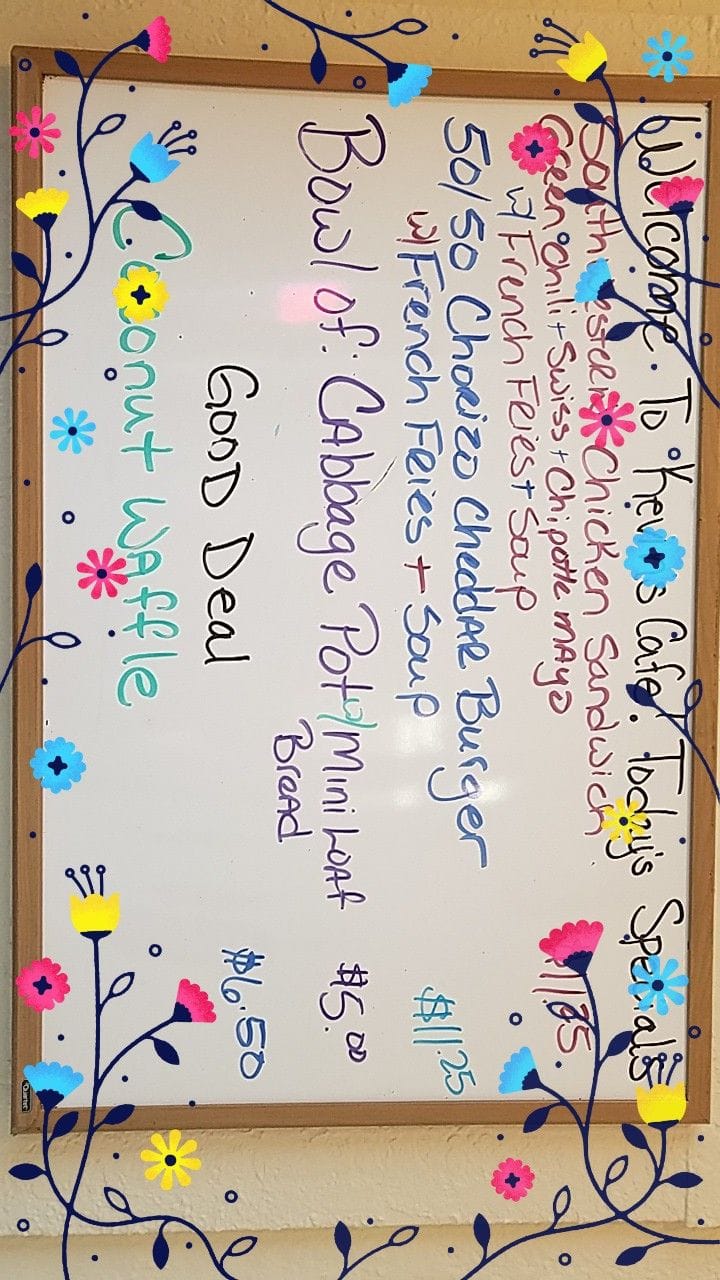 Welcome To Kev's Cafe! Today's Specials
Southwestern Chicken Sandwich
Green chili + Swiss + Chipotle mayo
w/ French Fries + Soup $11.25
50/50 Chorizo Cheddar Burger
w/ French Fries + Soup $11.25
Bowl of: Cabbage Pot w/ Mini Loaf $5.00
Bread
Good Deal $6.50
Coconut Waffle
Quartet